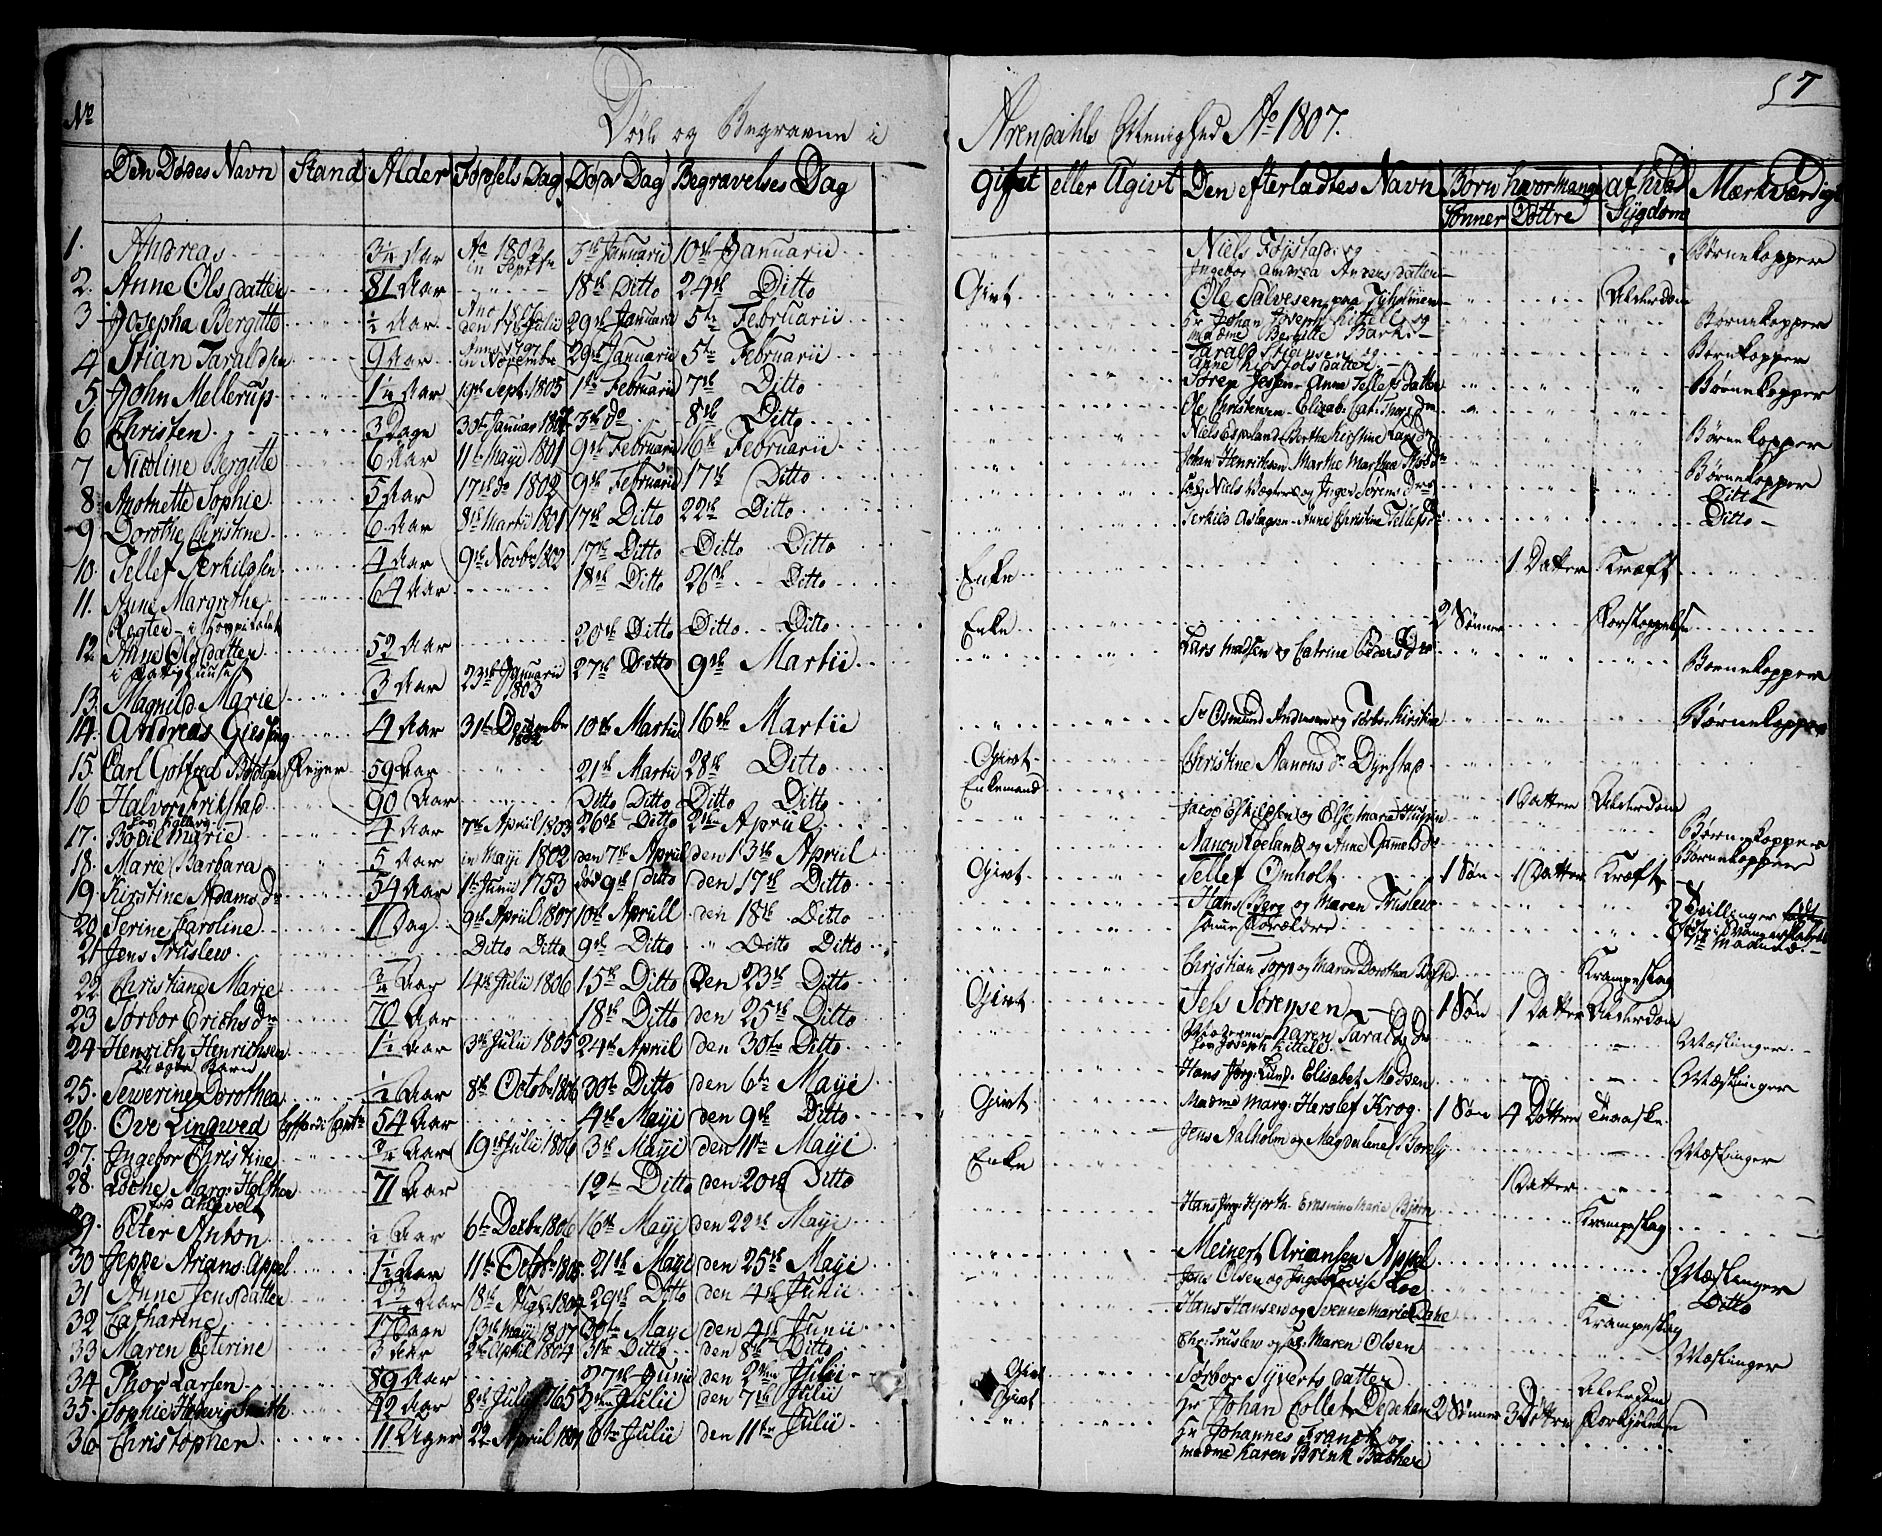 57
Døde og Begravne i Arendahls Menighed Ao 1807.
No Den Dødes Navn Stand Alder Føpsels Dag Døps Dag Begravelses Dag Gifst eller Ugivt Den efterladtes Navn Børn hvormange Sønner Døttre af hvad Sygdom Mærkværdig
1. Andreas 3¼ Aar Ao 1803 in Septbr 7de Januarii 10de Januarii Niels Føystad og Ingebor Andrea Andersdatter Børnekopper
2. Anne Olsdatter 81 Aar 18de Ditto 24de Ditto Givt Ole Salvesen paa Tyholmen Alderdom
3 Josepha Bergitte ½ Aar Ano 1806 den 17de Julii 29de Januarii 5te Februarii Hr Johan Joseph Kittel og Madme Bergitte Bark Børnekopper
4 Stian Taraldsen 9 Aar Anno 1797 in Novembre 29de Januarii 5te Februarii Tarald Stiansen og Anne Kirstols datter Børnekopper
5 John Mellerup 1¼ Aar 19de Sept. 1805 1ste Februarii 7de Ditto Søren Jessen Anne Tellefsdatter Børnekopper
6 Christen 3 Dage 30te Januar 1807 3de do 8de Ditto Ole Christensen Elizab. Cat. Thors dr
7 Nicoline Bergitte 6 Aar 11te Maji 1801 9de Februarii 16de Februarii Niels Espeland Berthe Kirstine Lars dr Børnekopper
8. Anotnette Sophie 5 Aar 17de do 1802 9de Februarii 17de Ditto Johan Henrichsen Marthe Marthea Børnekopper
9 Dorothe Christine 6 Aar 8de Martii 1801 17de Ditto 22de Ditto Niels og Inger Sørens Dr Ditto
10. Tellef Terkilsen 4 Aar 9de Novbr 1802 17de Ditto Ditto Ditto Terkild Aslagsen Anne Christine Tellefs dr Ditto
11. Anne Margrethe Røgter i Hospitalet 64 Aar 18de Ditto 26de Ditto Enke 1 Datter Kræft
12. Anne Olsdatter i Fattighuuset 52 Aar 20de Ditto Ditto Ditto Enke 2 Sønner
13. Magnild Marie 3 Aar 23de Januarii 1803 27de Ditto 9de Martii Lars Madsen og Catrine Peders dr Børnekopper
14. Andreas Giesing 4 Aar 31te Decembr 1802 10de Martii 16de Martii Sr Osmund Andersen og Torbor Kirstine Børnekopper
15. Carl Gotfred 59 Aar 21de Martii 28de Ditto Givt Christine Aanons dr Dyrstad
16 Halvor Frikstad 90 Aar Ditto Ditto Ditto Ditto Enkemand 1 Datter Alderdom
17. Bodil Marie 4 Aar 7de April 1803 26de Ditto 2den April Jacob Eskildsen og Else Marie Børnekopper
18. Marie Barbara 5 Aar in Maji 1802 den 7de April den 13de April Aanon og Anne Gunnelsdr Børnekopper
19. Kirstine Adams dr 54 Aar 1te Junii 1753 død 9de Ditto den 17de Ditto Givt Tellef Omholt 1 Søn 1 Datter Kræft
20 Serine Caroline 1 Dag 9de April 1807 10de Aprill den 18de Ditto Hans Berg og Maren Truslew Tvillinger
21 Jens Truslew Ditto Ditto 9de Ditto Ditto Ditto samme Forældre
22 Christiane Marie ¾ Aar 14de Julii 1806 15de Ditto den 23de Ditto Christian Torp og Maren Dorothea Krampeslag
23 Torbor Erichs dr 70 Aar 18de Ditto den 25de Ditto Givt Jess Sørensen 1 Søn 1 Datter Alderdom
24 Henrich Henrichsen 1½ Aar 3de Julii 1805 24de April den 30te Ditto Moderen Karen Tarald dr Mæslinger
25. Severine Dorothea ½ Aar 8de Octobr 1806 30te Ditto den 6te Maji Hans Jørg. Lund. Elisabet Madsen Mæslinger
26. Ove Lingwed 54 Aar 4de Maji den 9de Ditto Givt Madme Marg. Herslef Krog. 1 Søn 4 Døttre
27. Ingebor Christine ¾ Aar 19de Julii 1806 3de Maji den 11te Maji Jens Aalholm og Magdalene Mæslinger
28. Marg. Holsther 71 Aar 12te Ditto den 20de Ditto Enke 1 Datter
29. Peter Anton ½ Aar 6te Decbr 1806 16de Maji den 22de Maji Hans Jørg. Hjorth. Erasmine Marie Bjørn Krampeslag
30 Jeppe Arians. Appel 1½ Aar 11te Octobr 1805 21de Maji den 25de Maji Meinert Ariansen Appel Mæslinger
31 Anne Jensdatter 2¾ Aar 18de Aug. 1804 29de Ditto den 4de Junii Jens Olsen og Ingeb. Lovise Loe Ditto
32 Catharine 17 Dage 13de Maji 1807 30te Maji den 4de Junii Hans Hansen og Severine Marie Krampeslag
33 Maren Peterine 3 Aar 2de April 1804 31te Ditto den 8de Ditto Chr. Truslew og Maren Olsen Mæslinger
34 Thor Larsen 89 Aar 27de Junii den 2den Julii Givt Torbor Syvertsdatter Alderdom
35. Sophie Hedevig Smith 42 Aar 8de Julii 1765 3den Julii den 7de Julii Givt Hr Johan Collet Dedekam 2 Sønner 3 Døttre
36 Christopher 11 Uger 22 April 1807 6te Julii den 11te Julii Hr Johannes Franck og Madme Karen Brink Bacher